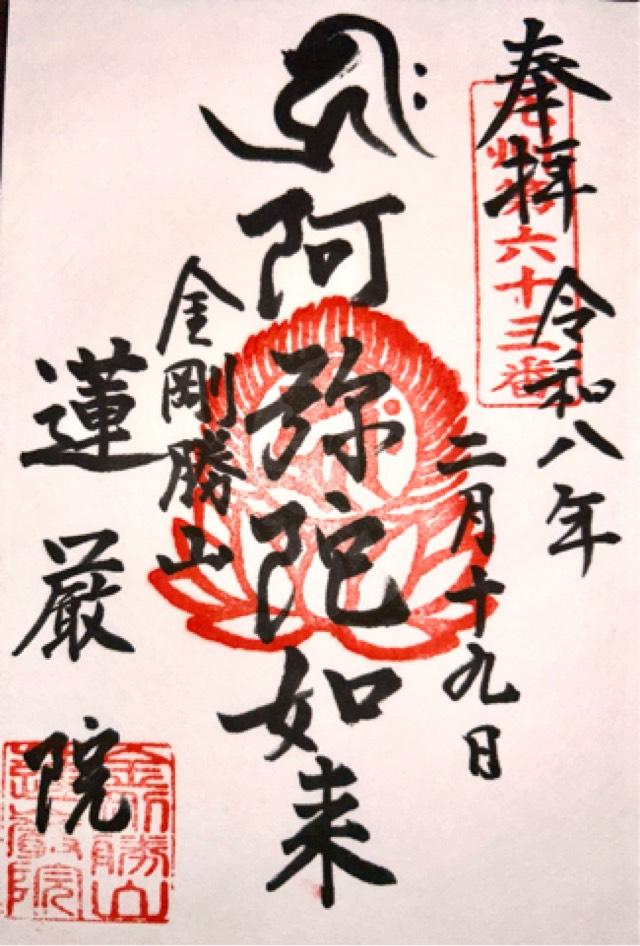 奉拝
令和八年
二月十九日
阿弥陀如来
金剛勝山
蓮厳院
第六十三番
金剛勝山
蓮厳院